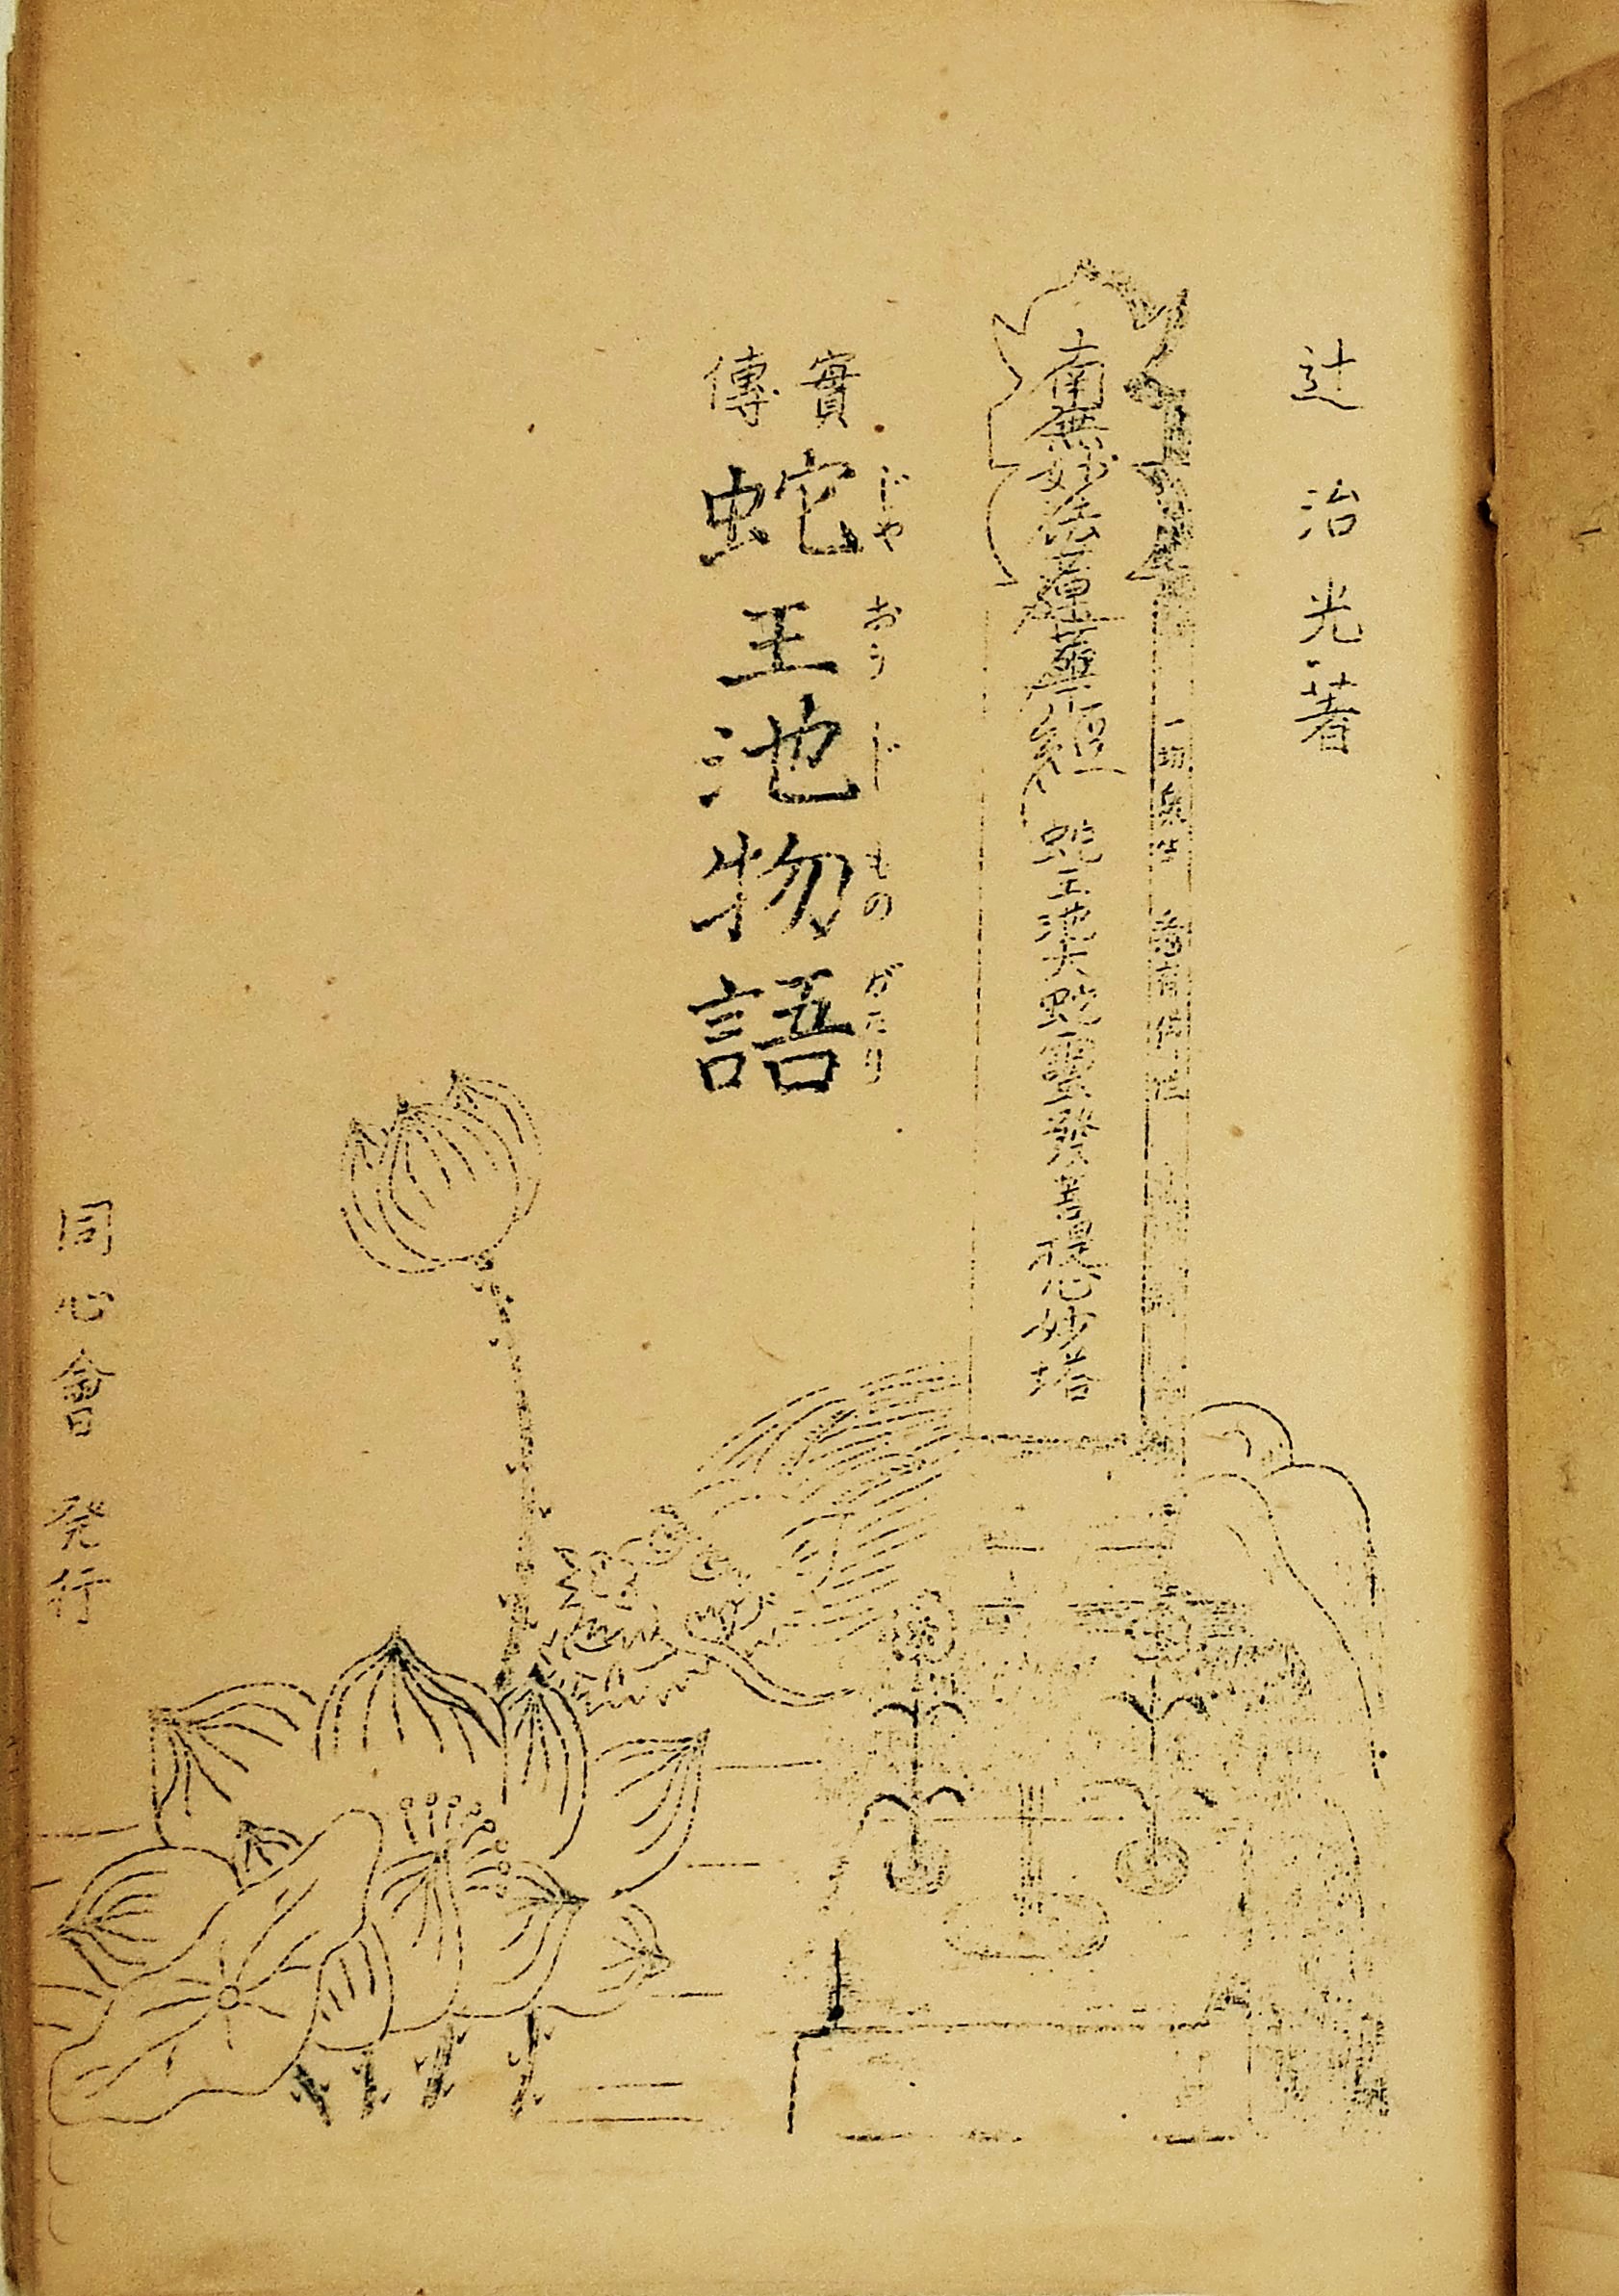 辻治光著
一切衆生 悉有佛性
南無妙法蓮華經 蛇王池大蛇霊発菩提心妙塔
實傳
蛇王池物語
じゃ おう じ もの がたり
同心會発行